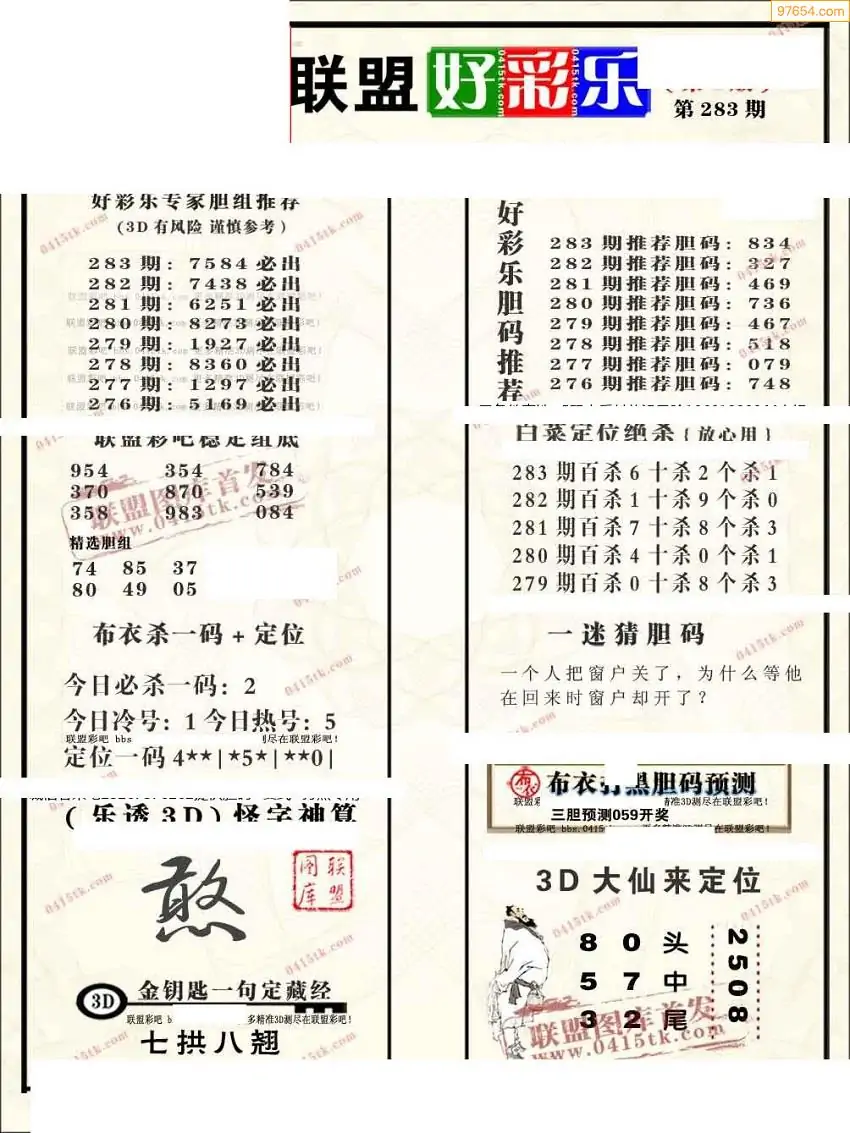 97654.com
联盟好彩乐
第283期
好彩乐专家胆组推荐
(3D有风险 谨慎参考)
283期:7584必出
282期:7438必出
281期:6251必出
280期:8273必出
279期:1927必出
278期:8360必出
277期:1297必出
276期:5169必出
好彩乐胆码推荐
283期推荐胆码:834
282期推荐胆码:327
281期推荐胆码:469
280期推荐胆码:736
279期推荐胆码:467
278期推荐胆码:518
277期推荐胆码:079
276期推荐胆码:748
联盟彩吧稳定组底
954 354 784
370 870 539
358 983 084
精选胆组
74 85 37
80 49 05
白菜定位绝杀{放心用}
283期百杀6十杀2个杀1
282期百杀1十杀9个杀0
281期百杀7十杀8个杀3
280期百杀4十杀0个杀1
279期百杀0十杀8个杀3
布衣杀一码+定位
今日必杀一码:2
今日冷号:1今日热号:5
联盟彩吧 bbs
尽在联盟彩吧!
定位一码4**|*5*|**0|
一迷猜胆码
一个人把窗户关了,为什么等他
在回来时窗户却开了?
(乐透3D)怪字神算
憨
联盟图库
3D
金钥匙一句定藏经
多精准3D测尽在联盟彩吧!
七拱八翘
胆码预测
精准3D测尽在联盟彩吧!
三胆预测059开奖
在联盟彩吧!
3D大仙来定位
80头
57中
32尾
2508
联盟图库首发
www.0415tk.com
0415tk.com